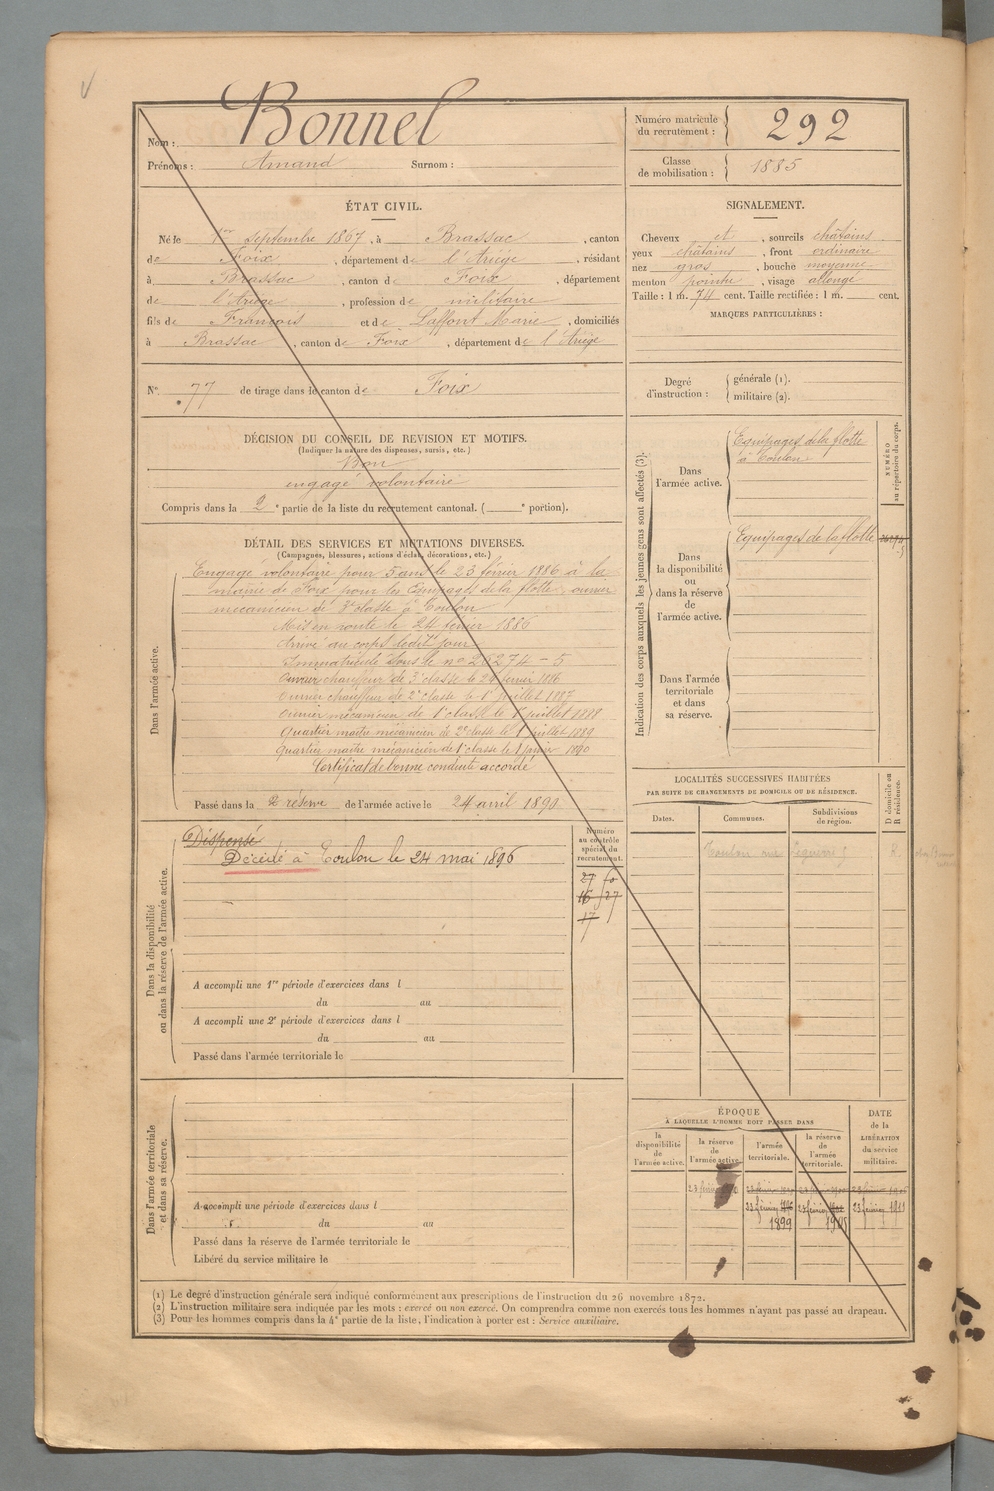 Nom : Bonnel
Prénoms : Amand Surnom :
Numéro matricule du recrutement : 292
Classe de mobilisation : 1885
ÉTAT CIVIL.
Né le 1er septembre 1867, à Brassac, canton
de Foix, département de l'Ariège, résidant
à Brassac, canton de Foix, département
de l'Ariège, profession de militaire
fils de François et de Laffont Marie, domiciliés
à Brassac, canton de Foix, département de l'Ariège
SIGNALEMENT.
Cheveux et, sourcils châtains
yeux châtains, front ordinaire
nez gros, bouche moyenne
menton pointu, visage allongé
Taille : 1 m. 74 cent. Taille rectifiée : 1 m. cent.
MARQUES PARTICULIÈRES :
No 77 de tirage dans le canton de Foix
Degré d'instruction : générale (1).
militaire (2).
DÉCISION DU CONSEIL DE REVISION ET MOTIFS.
(Indiquer la nature des dispenses, sursis, etc.)
Bon
engagé volontaire
Compris dans la 2e partie de la liste du recrutement cantonal. ( e portion).
DÉTAIL DES SERVICES ET MUTATIONS DIVERSES.
(Campagnes, blessures, actions d'éclat, décorations, etc.)
Dans l'armée active.
Engagé volontaire pour 5 ans le 23 février 1886 à la
mairie de Foix pour les Equipages de la flotte, ouvrier
mécanicien de 3e classe à Toulon
Mis en route le 24 février 1886
Arrivé au corps ledit jour
Immatriculé sous le no 26274-5
Ouvrier chauffeur de 3e classe le 24 février 1886
Ouvrier chauffeur de 2e classe le 1er juillet 1887
Ouvrier mécanicien de 1e classe le 1er juillet 1888
Quartier maître mécanicien de 2e classe le 1er juillet 1889
Quartier maître mécanicien de 1e classe le 1er janvier 1890
Certificat de bonne conduite accordé
Passé dans la réserve de l'armée active le 24 avril 1890
Indication des corps auxquels les jeunes gens sont affectés (3).
NUMÉRO au répertoire du corps.
Dans l'armée active.
Equipages de la flotte
à Toulon
Dans la disponibilité ou dans la réserve de l'armée active.
Equipages de la flotte
Dans l'armée territoriale et dans sa réserve.
Dans la disponibilité ou dans la réserve de l'armée active.
Dispensé
Décédé à Toulon le 24 mai 1896
Numéro au contrôle spécial du recrutement.
27
16 27
17
A accompli une 1re période d'exercices dans l
du au
A accompli une 2e période d'exercices dans l
du au
Passé dans l'armée territoriale le
LOCALITÉS SUCCESSIVES HABITÉES
PAR SUITE DE CHANGEMENTS DE DOMICILE OU DE RÉSIDENCE.
D domicile ou R résidence.
Dates. Communes. Subdivisions de région.
Toulon rue R.
Dans l'armée territoriale et dans sa réserve.
A accompli une période d'exercices dans l
du au
Passé dans la réserve de l'armée territoriale le
Libéré du service militaire le
ÉPOQUE
À LAQUELLE L'HOMME DOIT PASSER DANS
la disponibilité de l'armée active.
la réserve de l'armée active.
l'armée territoriale.
la réserve de l'armée territoriale.
DATE de la LIBÉRATION du service militaire.
23 février
23 février 1899
23 février 1905
23 février 1911
(1) Le degré d'instruction générale sera indiqué conformément aux prescriptions de l'instruction du 26 novembre 1872.
(2) L'instruction militaire sera indiquée par les mots : exercé ou non exercé. On comprendra comme non exercés tous les hommes n'ayant pas passé au drapeau.
(3) Pour les hommes compris dans la 4e partie de la liste, l'indication à porter est : Service auxiliaire.